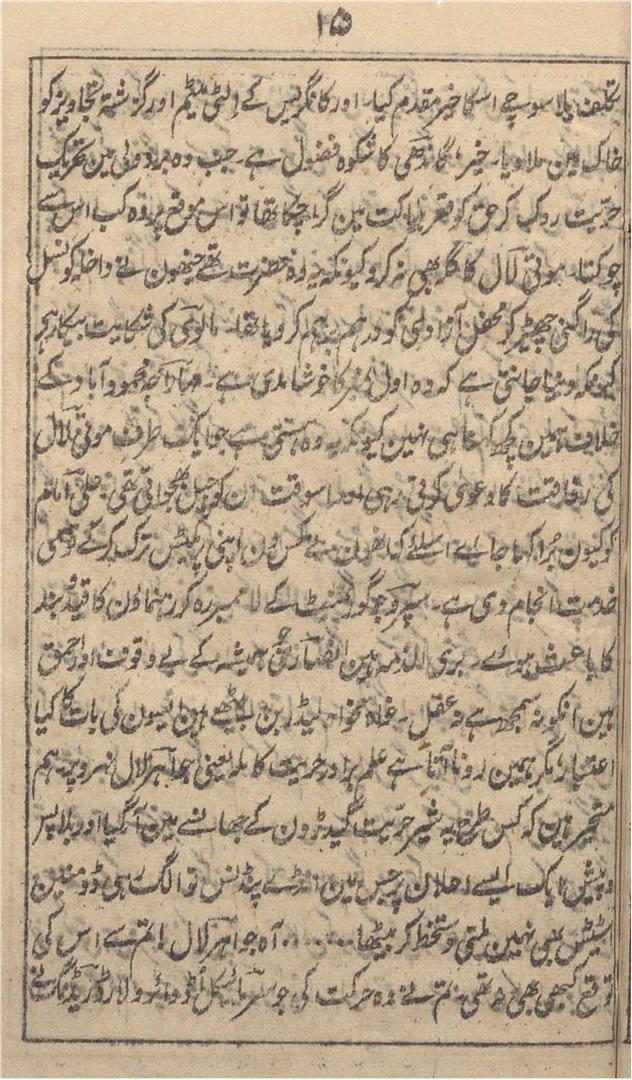 ۱۵
تکلف بلا سوچے اسکا خیر مقدم کیا۔ اور کانگریس کے الٹی میٹم اور گزشتہ تجاویز کو
خاک مین ملا دیا۔ خیر گاندھی کا شکوہ فضول ہے۔ جب وہ بردولی مین تحریک
حریت روک کر حق کو قعر ہلاکت مین گرا چکا تھا تو اس موقع پر وہ کب اس سے
چوکتا۔ موتی لال کا گلہ بھی نہ کرو کیونکہ یہ وہ حضرت تھے جنھون نے داخلہ کونسل
کی راگنی چھیڑ کر محفل آزادی کو درہم برہم کر دیا تھا۔ مالوی کی شکایت بیکار ہے
کیونکہ دنیا جانتی ہے کہ وہ اول نمبر کا خوشامدی ہے۔ مہاراجہ محمود آباد کے
خلاف ہمین کچھ کہنا ہی نہین کیونکہ یہ وہ ہستی ہے جو ایک طرف موتی لال
کی رفاقت کا دعوی کرتی رہی اور اسوقت ان کو جیل بھجواتی تھی۔ علی امام
کو کیون برا کہا جائے اسلئے کہ انھون نے کس دن اپنی پریکٹس ترک کرکے قومی
خدمت انجام دی ہے۔ سپرو جو گورنمنٹ کے لا ممبر رہ کر رہنماؤن کا قید و بند
کا باعث ہوئے۔ بری الذمہ ہین انصاری ہمیشہ کے بے وقوف اور احمق
ہین انکو نہ سمجھ ہے نہ عقل۔ خواہ مخواہ لیڈر بن بیٹھے ہین ایسون کی بات کا کیا
اعتبار مگر ہمین رونا آتا ہے علم بردار حریت کا ملہ یعنی جواہر لال نہرو پر۔ ہم
متحیر ہین کہ کس طرح یہ شیر حریت گیدڑون کے جھانسے مین آ گیا اور بلا پس
و پیش ایک ایسے اعلان پر جس مین انڈے پنڈنس تو الگ رہی ڈومنین
اسٹیٹس بھی نہین ملتی دستخط کر بیٹھا ۔۔۔۔۔۔ آہ جواہر لال! تم سے اس کی
توقع کبھی بھی نہ تھی۔ تم نے وہ حرکت کی جو سر مائیکل اڈوائر و لارڈ ریڈنگ نے